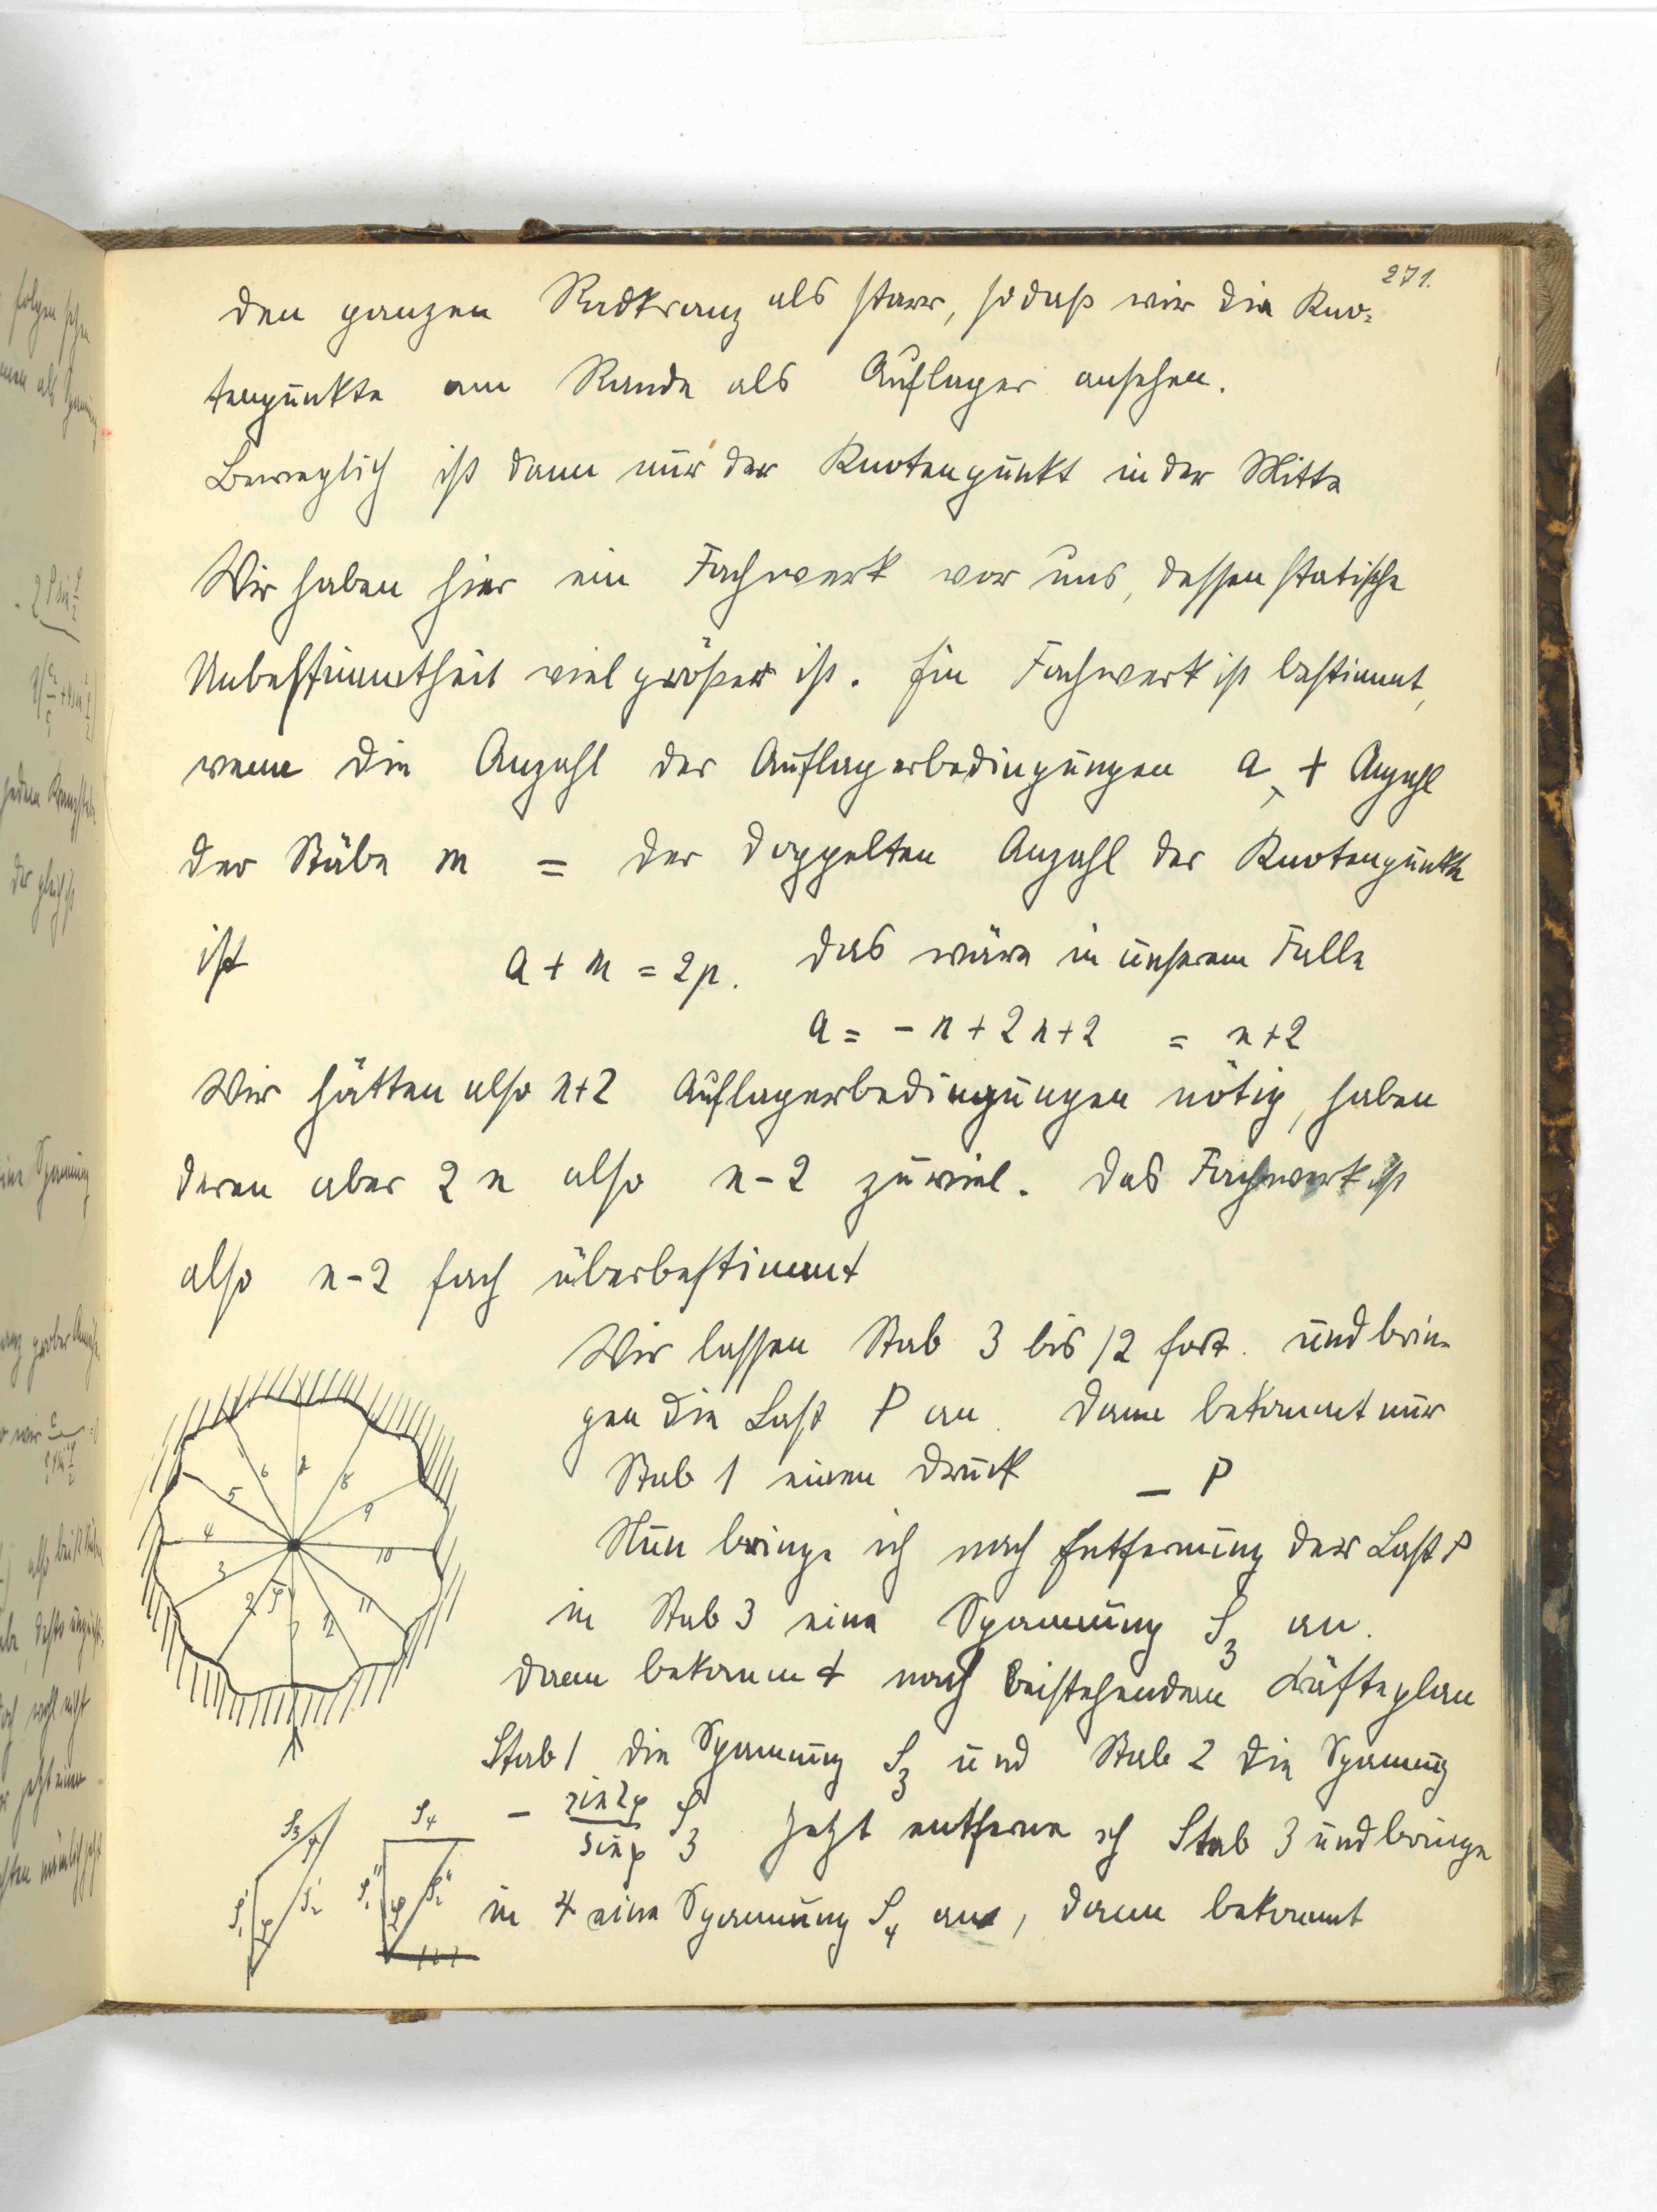 271.
den ganzen Radkranz als starr, sodaß wir die Kno-
tenpunkte am Rande als Auflager ansehen.
Beweglich ist dann nur der Knotenpunkt in der Mitte
Wir haben hier ein Fachwerk vor uns, dessen statische
Unbestimmtheit viel größer ist. Ein Fachwerk ist bestimmt,
wenn die Anzahl der Auflagerbedingungen a + Anzahl
der Stäbe m = der doppelten Anzahl der Knotenpunkte
ist a + n = 2p. Das wäre in unserem Falle
a = - n + 2n + 2 = n + 2
Wir hätten also n+2 Auflagerbedingungen nötig, haben
deren aber 2n also n-2 zuviel. Das Fachwerk ist
also n-2 fach überbestimmt
Wir lassen Stab 3 bis 12 fort. und brin-
gen die Last P an. Dann bekommt nur
Stab 1 einen Druck - P
Nun bringe ich nach Entfernung der Last P
in Stab 3 eine Spannung S3 an.
Dann bekommt nach beistehendem Kräfteplan
Stab 1 die Spannung S3 und Stab 2 die Spannung
- sin2φ/sinφ S3 Jetzt entferne ich Stab 3 und bringe
in 4 eine Spannung S4 an, dann bekommt
6 8
5 9
4 10
3 11
2 φ 1 12
S3 S1' S2' φ
S4 S1'' S2'' φ